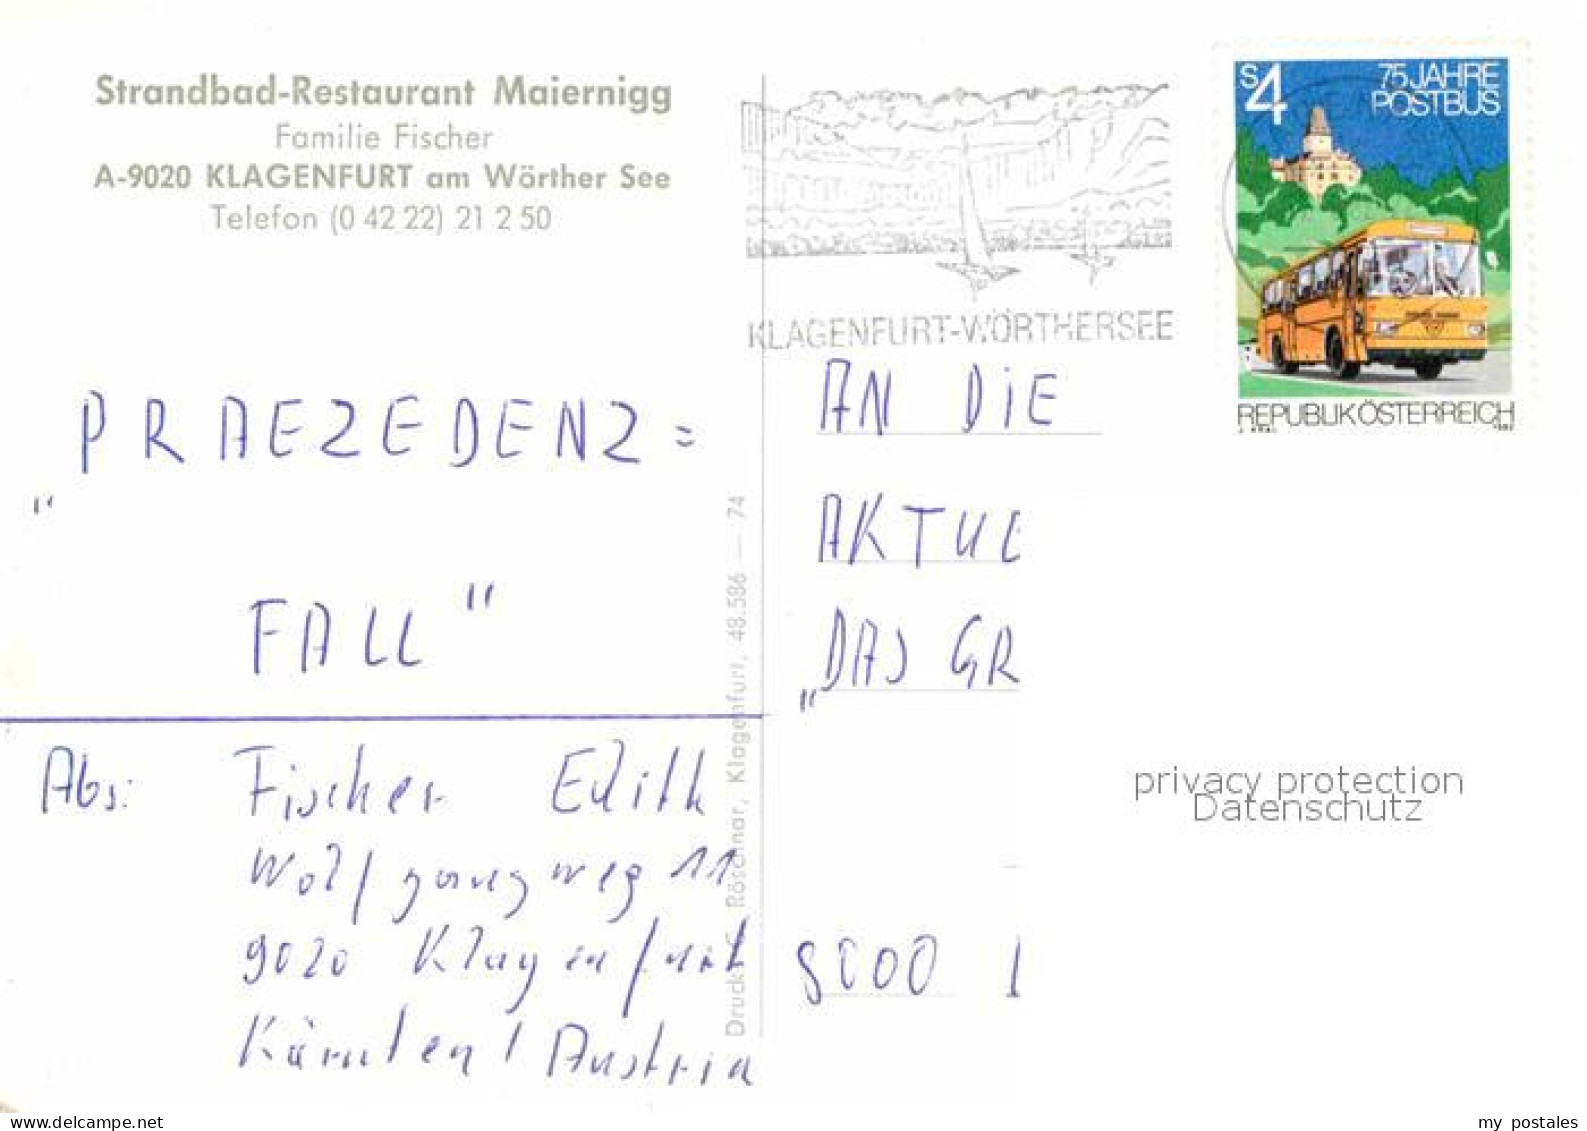 Strandbad-Restaurant Maiernigg
Familie Fischer
A-9020 KLAGENFURT am Wörther See
Telefon (0 42 22) 21 2 50
KLAGENFURT-WÖRTHERSEE
S4
75 JAHRE
POSTBUS
REPUBLIK ÖSTERREICH
"PRAEZEDENZ=
FALL"
Abs: Fischer Edith
Wolfgangweg 11
9020 Klagenfurt
Kärnten / Austria
Druck: Röschnar, Klagenfurt, 48.586 — 74
AN DIE
AKTUE
"DAS GR
8000
privacy protection
Datenschutz
my postales